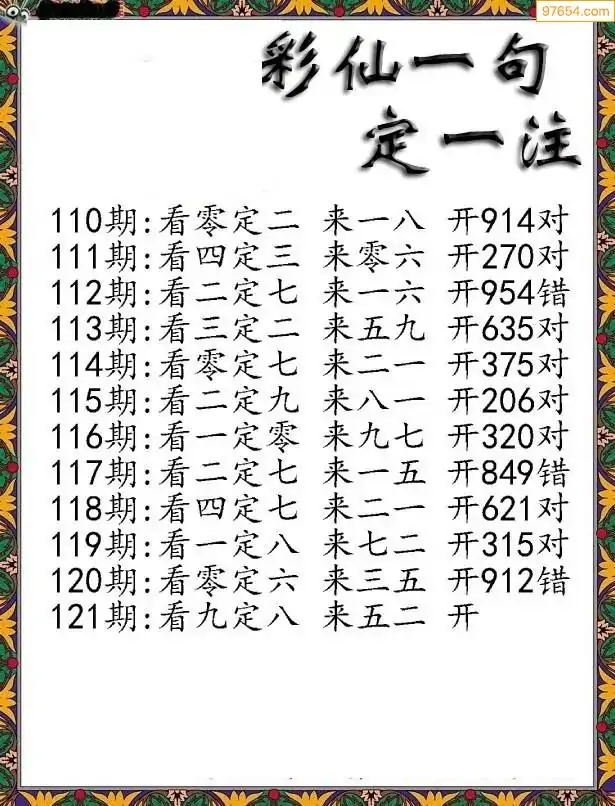 97654.com
彩仙一句
定一注
110期:看零定二 来一八 开914对
111期:看四定三 来零六 开270对
112期:看二定七 来一六 开954错
113期:看三定二 来五九 开635对
114期:看零定七 来二一 开375对
115期:看二定九 来八一 开206对
116期:看一定零 来九七 开320对
117期:看二定七 来一五 开849错
118期:看四定七 来二一 开621对
119期:看一定八 来七二 开315对
120期:看零定六 来三五 开912错
121期:看九定八 来五二 开